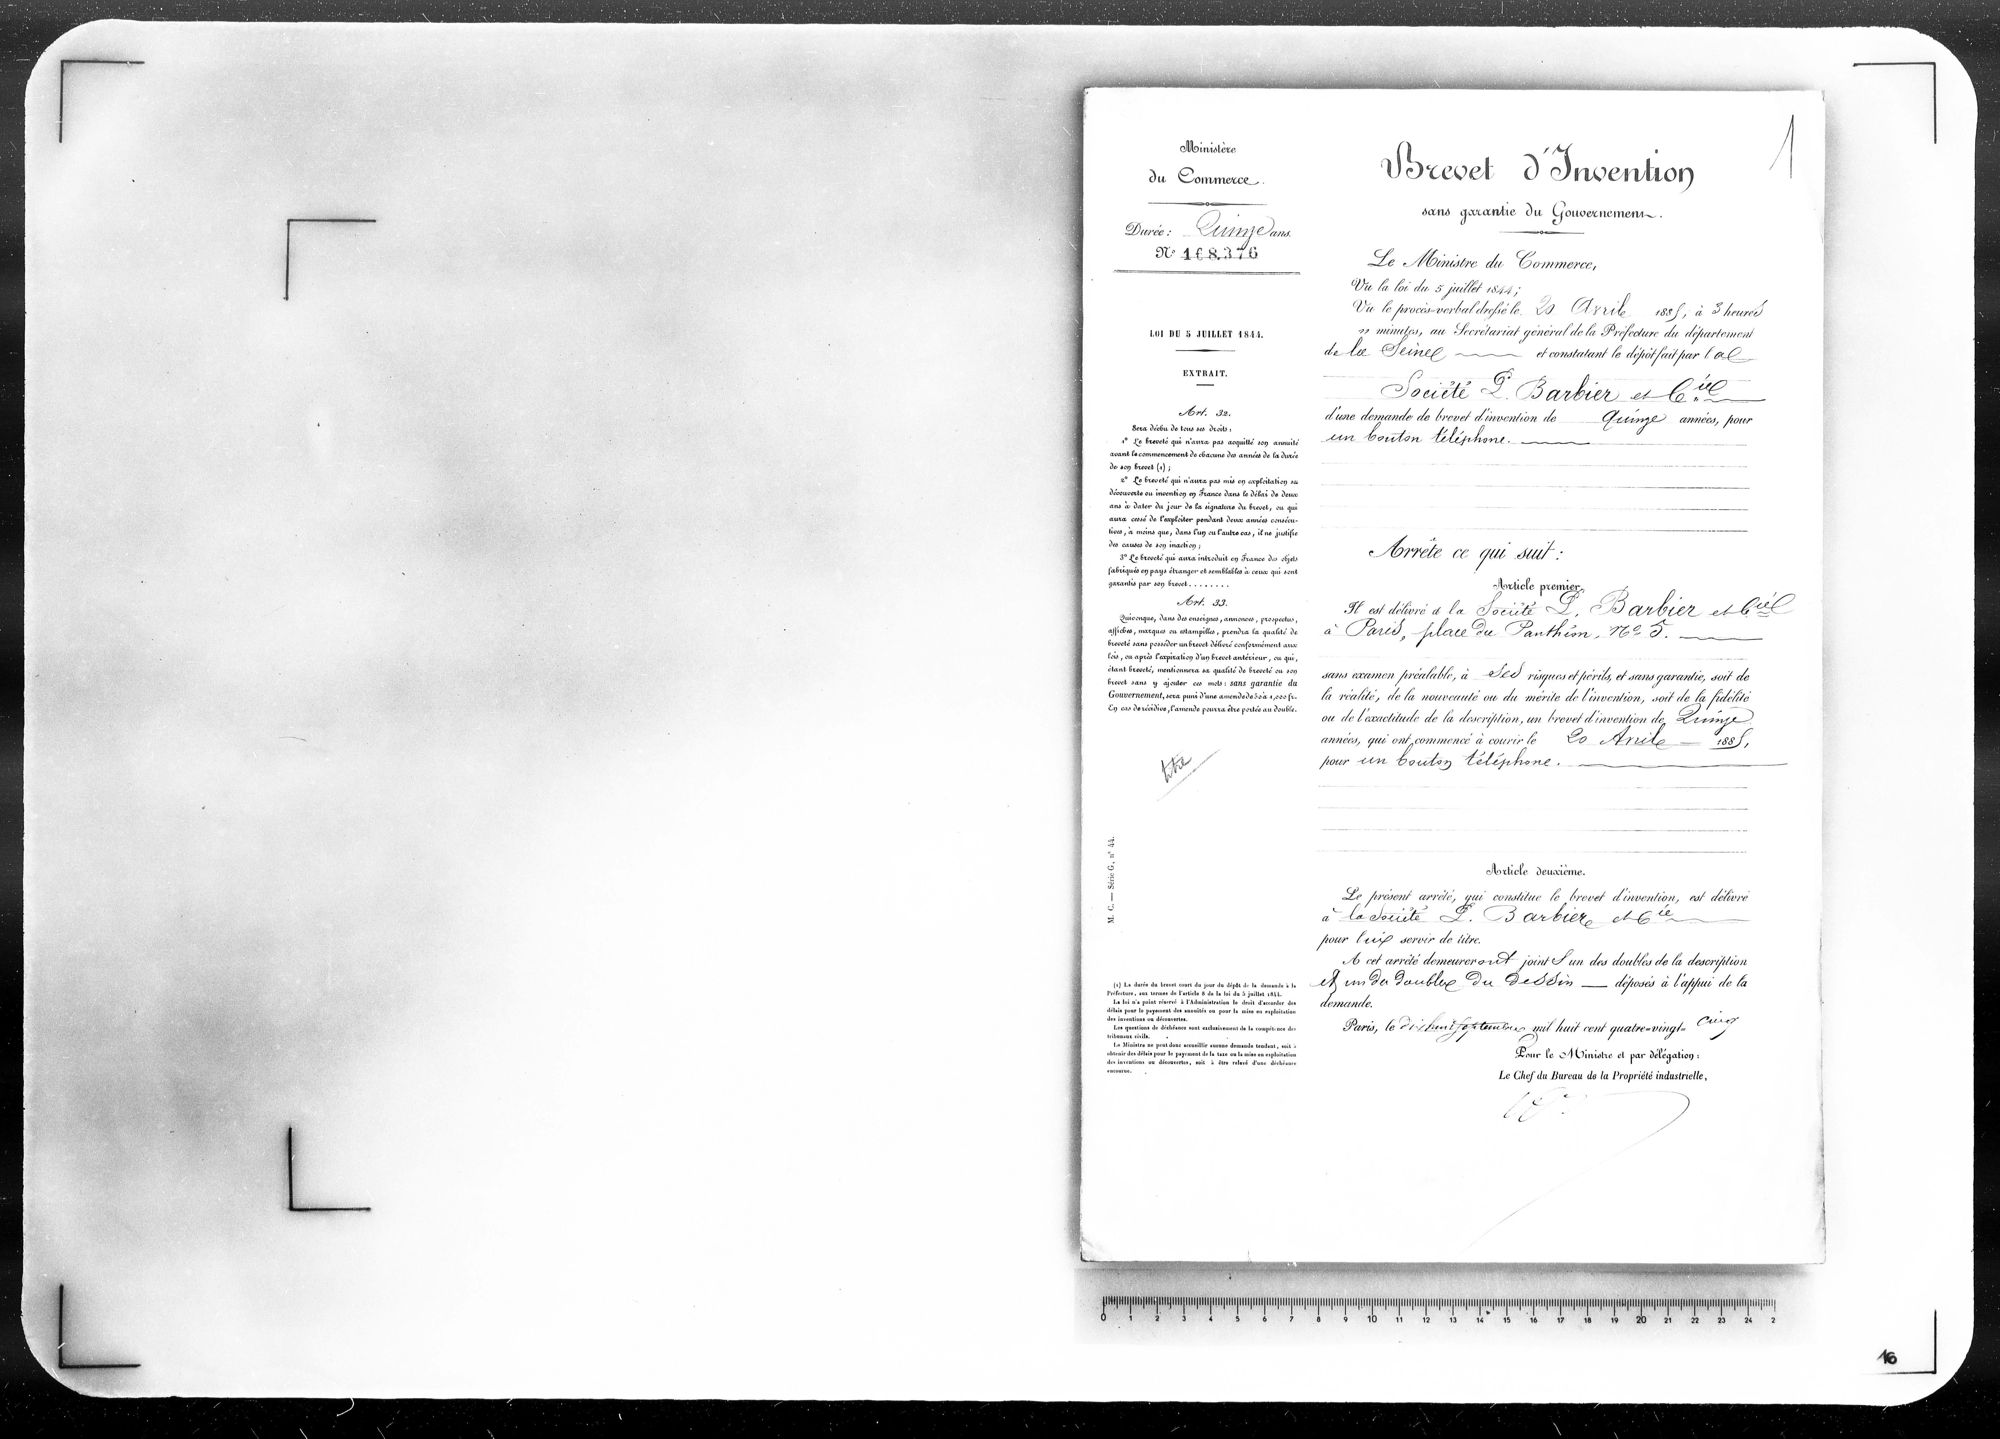 1
Ministère
du Commerce.
Durée: Quinze ans.
N° 168.376
LOI DU 5 JUILLET 1844.
EXTRAIT.
Art. 32.
Sera déchu de tous ses droits:
1° Le breveté qui n'aura pas acquitté son annuité
avant le commencement de chacune des années de la durée
de son brevet (1);
2° Le breveté qui n'aura pas mis en exploitation sa
découverte ou invention en France dans le délai de deux
ans à dater du jour de la signature du brevet, ou qui
aura cessé de l'exploiter pendant deux années consécu-
tives, à moins que, dans l'un ou l'autre cas, il ne justifie
des causes de son inaction;
3° Le breveté qui aura introduit en France des objets
fabriqués en pays étranger et semblables à ceux qui sont
garantis par son brevet........
Art. 33.
Quiconque, dans des enseignes, annonces, prospectus,
affiches, marques ou estampilles, prendra la qualité de
breveté sans posséder un brevet délivré conformément aux
lois, ou après l'expiration d'un brevet antérieur, ou qui,
étant breveté, mentionnera sa qualité de breveté ou son
brevet sans y ajouter ces mots: sans garantie du
Gouvernement, sera puni d'une amende de 50 à 1,000 fr.
En cas de récidive, l'amende pourra être portée au double.
titre
M. C. — Série G, n° 44.
(1) La durée du brevet court du jour du dépôt de la demande à la
Préfecture, aux termes de l'article 8 de la loi du 5 juillet 1844.
La loi n'a point réservé à l'Administration le droit d'accorder des
délais pour le payement des annuités ou pour la mise en exploitation
des inventions ou découvertes.
Les questions de déchéance sont exclusivement de la compétence des
tribunaux civils.
Le Ministre ne peut donc accueillir aucune demande tendant, soit à
obtenir des délais pour le payement de la taxe ou la mise en exploitation
des inventions ou découvertes, soit à être relevé d'une déchéance
encourue.
Brevet d'Invention
sans garantie du Gouvernement.
Le Ministre du Commerce,
Vu la loi du 5 juillet 1844;
Vu le procès-verbal dressé le 20 Avril 1885, à 3 heures
" minutes, au Secrétariat général de la Préfecture du département
de la Seine et constatant le dépôt fait par la
Société P. Barbier et Cie
d'une demande de brevet d'invention de Quinze années, pour
un bouton téléphone.
Arrête ce qui suit:
Article premier.
Il est délivré à la Société P. Barbier et Cie
à Paris, place du Panthéon, No 5.
sans examen préalable, à ses risques et périls, et sans garantie, soit de
la réalité, de la nouveauté ou du mérite de l'invention, soit de la fidélité
ou de l'exactitude de la description, un brevet d'invention de Quinze
années, qui ont commencé à courir le 20 Avril 1885,
pour un bouton téléphone.
Article deuxième.
Le présent arrêté, qui constitue le brevet d'invention, est délivré
à la Société P. Barbier et Cie
pour lui servir de titre.
A cet arrêté demeureront joints un des doubles de la description
et un des doubles du dessin — déposés à l'appui de la
demande.
Paris, le dix huit septembre mil huit cent quatre-vingt- cinq
Pour le Ministre et par délégation:
Le Chef du Bureau de la Propriété industrielle,
0 1 2 3 4 5 6 7 8 9 10 11 12 13 14 15 16 17 18 19 20 21 22 23 24 2
16